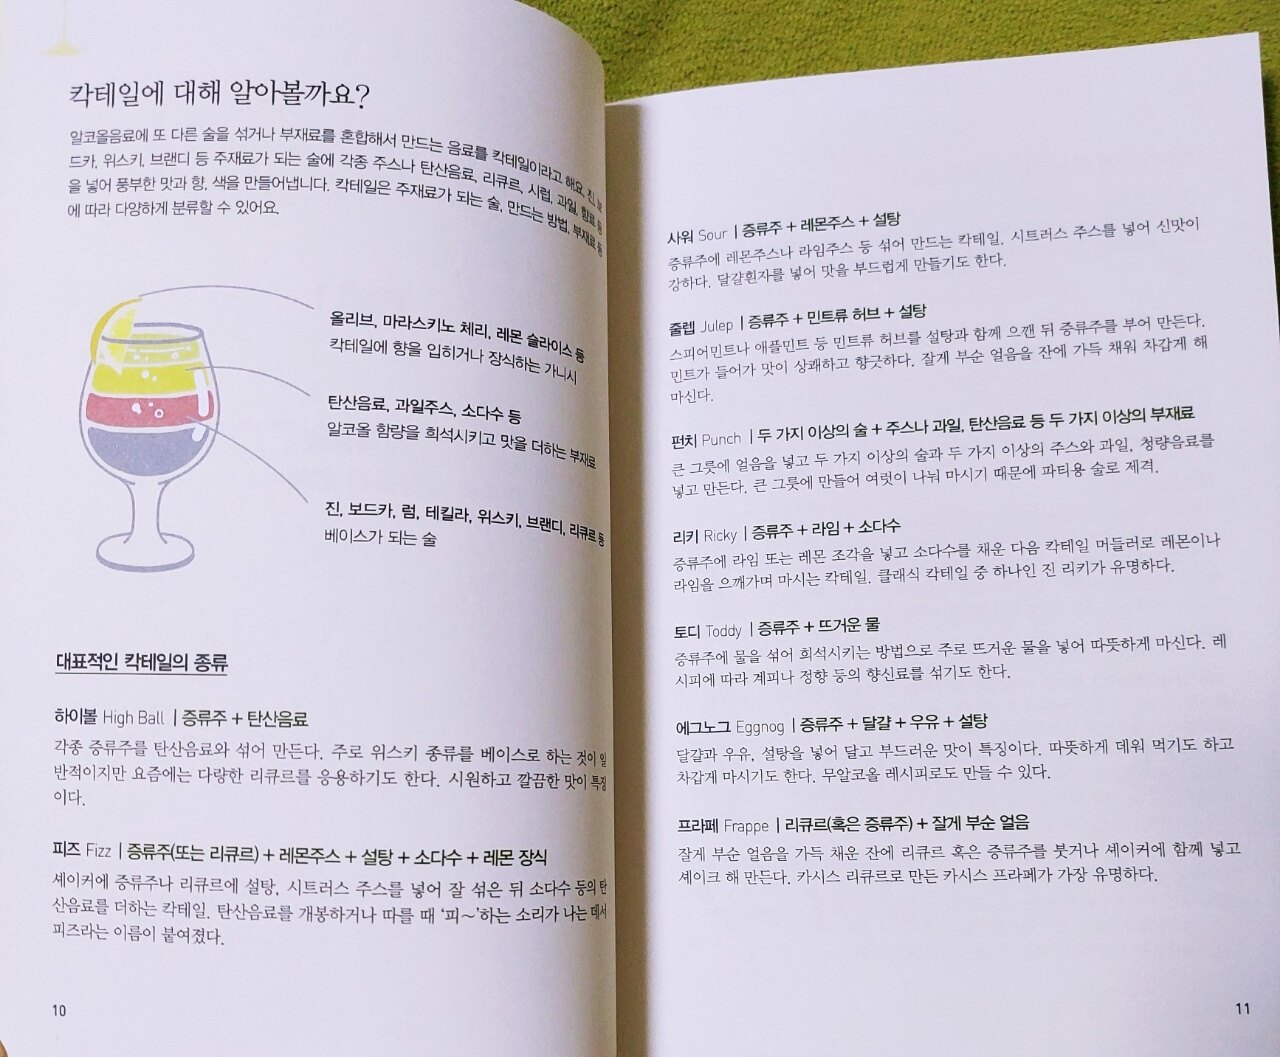 칵테일에 대해 알아볼까요?
알코올음료에 또 다른 술을 섞거나 부재료를 혼합해서 만드는 음료를 칵테일이라고 해요. 진, 보
드카, 위스키, 브랜디 등 주재료가 되는 술에 각종 주스나 탄산음료, 리큐르, 시럽, 과일, 향료 등
을 넣어 풍부한 맛과 향, 색을 만들어냅니다. 칵테일은 주재료가 되는 술, 만드는 방법, 부재료 등
에 따라 다양하게 분류할 수 있어요.
올리브, 마라스키노 체리, 레몬 슬라이스 등
칵테일에 향을 입히거나 장식하는 가니시
탄산음료, 과일주스, 소다수 등
알코올 함량을 희석시키고 맛을 더하는 부재료
진, 보드카, 럼, 테킬라, 위스키, 브랜디, 리큐르 등
베이스가 되는 술
대표적인 칵테일의 종류
하이볼 High Ball | 증류주 + 탄산음료
각종 증류주를 탄산음료와 섞어 만든다. 주로 위스키 종류를 베이스로 하는 것이 일
반적이지만 요즘에는 다량한 리큐르를 응용하기도 한다. 시원하고 깔끔한 맛이 특징
이다.
피즈 Fizz | 증류주(또는 리큐르) + 레몬주스 + 설탕 + 소다수 + 레몬 장식
셰이커에 증류주나 리큐르에 설탕, 시트러스 주스를 넣어 잘 섞은 뒤 소다수 등의 탄
산음료를 더하는 칵테일. 탄산음료를 개봉하거나 따를 때 ‘피~’하는 소리가 나는 데서
피즈라는 이름이 붙여졌다.
10
사워 Sour | 증류주 + 레몬주스 + 설탕
증류주에 레몬주스나 라임주스 등 섞어 만드는 칵테일. 시트러스 주스를 넣어 신맛이
강하다. 달걀흰자를 넣어 맛을 부드럽게 만들기도 한다.
줄렙 Julep | 증류주 + 민트류 허브 + 설탕
스피어민트나 애플민트 등 민트류 허브를 설탕과 함께 으깬 뒤 증류주를 부어 만든다.
민트가 들어가 맛이 상쾌하고 향긋하다. 잘게 부순 얼음을 잔에 가득 채워 차갑게 해
마신다.
펀치 Punch | 두 가지 이상의 술 + 주스나 과일, 탄산음료 등 두 가지 이상의 부재료
큰 그릇에 얼음을 넣고 두 가지 이상의 술과 두 가지 이상의 주스와 과일, 청량음료를
넣고 만든다. 큰 그릇에 만들어 여럿이 나눠 마시기 때문에 파티용 술로 제격.
리키 Ricky | 증류주 + 라임 + 소다수
증류주에 라임 또는 레몬 조각을 넣고 소다수를 채운 다음 칵테일 머들러로 레몬이나
라임을 으깨가며 마시는 칵테일. 클래식 칵테일 중 하나인 진 리키가 유명하다.
토디 Toddy | 증류주 + 뜨거운 물
증류주에 물을 섞어 희석시키는 방법으로 주로 뜨거운 물을 넣어 따뜻하게 마신다. 레
시피에 따라 계피나 정향 등의 향신료를 섞기도 한다.
에그노그 Eggnog | 증류주 + 달걀 + 우유 + 설탕
달걀과 우유, 설탕을 넣어 달고 부드러운 맛이 특징이다. 따뜻하게 데워 먹기도 하고
차갑게 마시기도 한다. 무알코올 레시피로도 만들 수 있다.
프라페 Frappe | 리큐르(혹은 증류주) + 잘게 부순 얼음
잘게 부순 얼음을 가득 채운 잔에 리큐르 혹은 증류주를 붓거나 셰이커에 함께 넣고
셰이크 해 만든다. 카시스 리큐르로 만든 카시스 프라페가 가장 유명하다.
11